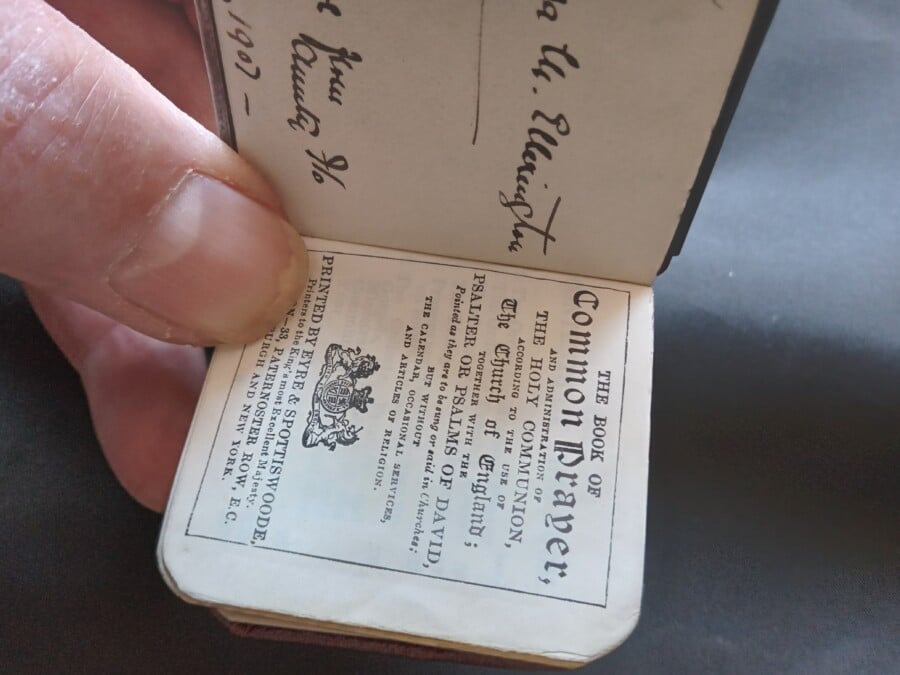 a M. Ellerington
from
Auntie Flo
1907 -
THE BOOK OF
Common Prayer,
AND ADMINISTRATION OF
THE HOLY COMMUNION,
ACCORDING TO THE USE OF
The Church of England;
TOGETHER WITH THE
PSALTER OR PSALMS OF DAVID,
Pointed as they are to be sung or said in Churches;
BUT WITHOUT
THE CALENDAR, OCCASIONAL SERVICES,
AND ARTICLES OF RELIGION.
PRINTED BY EYRE & SPOTTISWOODE,
Printers to the King's most Excellent Majesty.
N—33, PATERNOSTER ROW, E.C.
URGH AND NEW YORK.